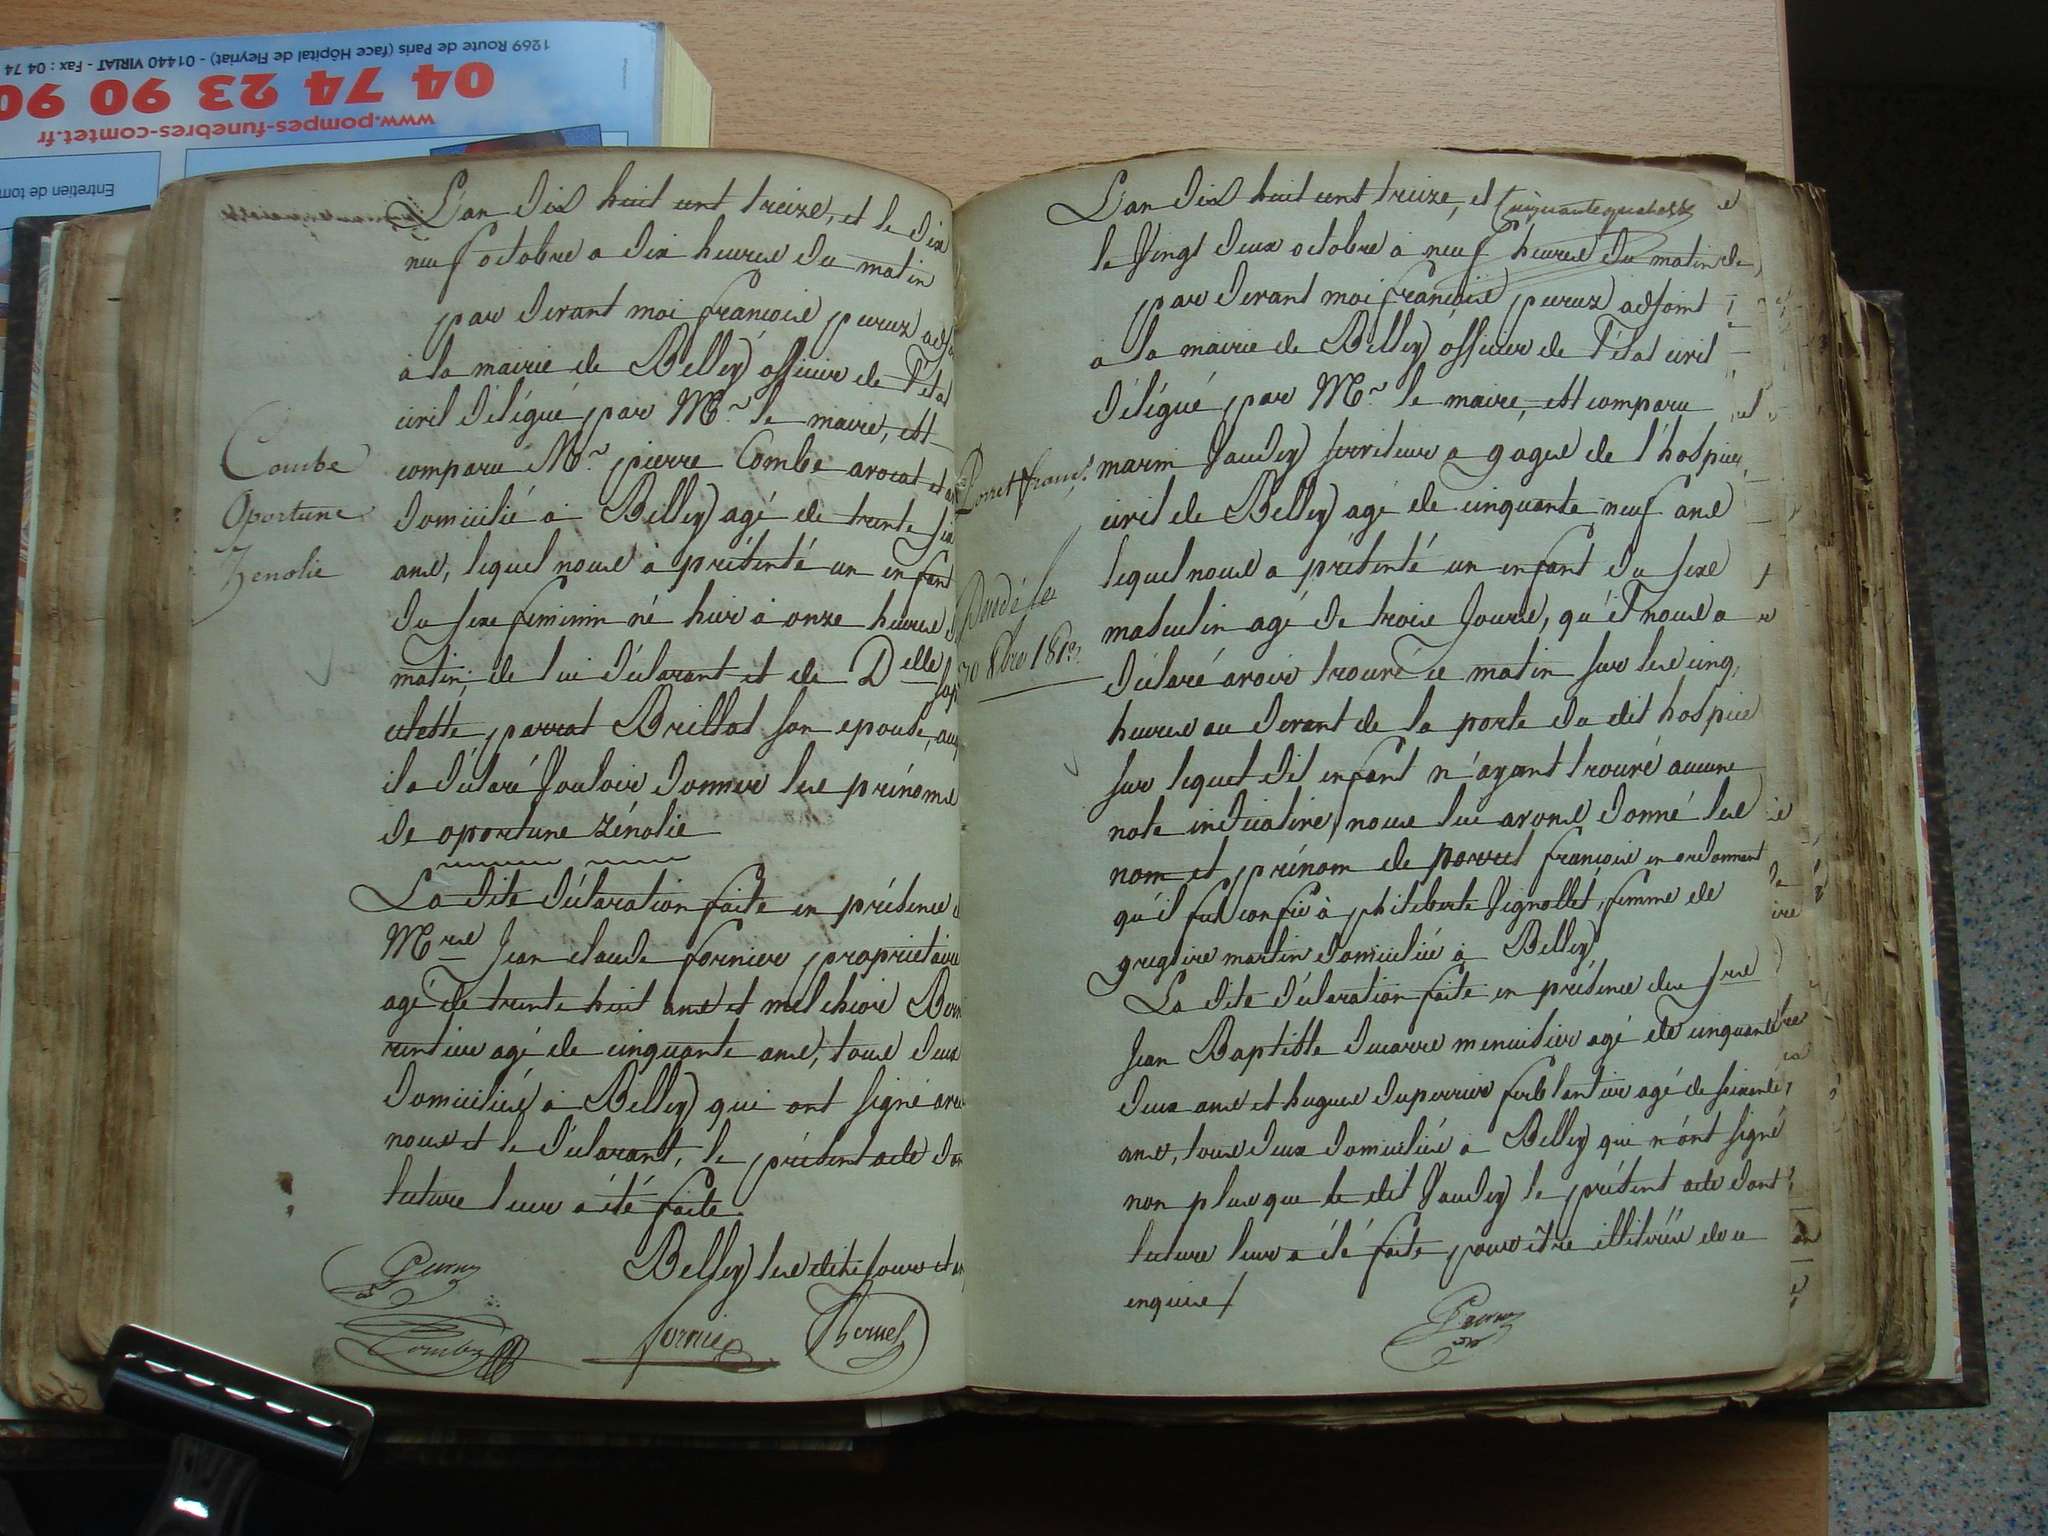 1269 Route de Paris (face Hôpital de Fleyriat) - 01440 VIRIAT - Fax : 04 74
04 74 23 90 90
www.pompes-funebres-comtet.fr
Entretien de tom
L'an dix huit cent treize, et le dix
neuf octobre a dix heures du matin
par devant moi françois peruz adjo
à la mairie de Belley officier de l'état
civil délégué par Mr. le maire, est
comparu Mr. pierre Combe avocat et
domicilié à Belley agé de trente six
ans, lequel nous à présenté un enfant
du sexe feminin né hier à onze heures d
matin, de lui déclarant et de Delle
ulette parrat Brillat son epouse, auq
il a déclaré Vouloir donner les prénoms
de oportune zénolie
La dite déclaration faite en présence d
Mrs Jean claude fornier propriétaire
agé de trente huit ans et melchior Ber
rentier agé de cinquante ans, tous deux
domiciliés à Belley qui ont signé avec
nous et le déclarant, le présent acte don
lecture leur a été faite.
Belley les dits jours et an
Combe
Oportune
Zenolie
Peruz
Combe
fornier
Bernel
L'an dix huit cent treize, et
Cinquantequatre
le Vingt deux octobre à neuf heures du matin
par devant moi françois peruz adjoint
a la mairie de Belley officier de l'état civil
délégué par Mr. le maire, est comparu
marin Vaudey serviteur a gages de l'hospice
civil de Belley agé de cinquante neuf ans
lequel nous a présenté un enfant du sexe
masculin agé de trois Jours, qu'il nous a
déclaré avoir trouvé ce matin sur les cinq
heures au devant de la porte du dit hospice
sur lequel dit enfant n'ayant trouvé aucune
note indicative, nous lui avons donné les
nom et prénom de porret françois en ordonnant
qu'il fut confié à philiberte Vignollet, femme de
gregoire martin domicilié à Belley
La dite déclaration faite en présence des srs
Jean Baptiste ducarre menuisier agé de cinquante
deux ans et hugues duperrier ferblantier agé de soixante
ans, tous deux domiciliés à Belley qui n'ont signé
non plus que le dit Vaudey le présent acte dont
lecture leur a été faite pour être illitérés de ce
enquis /
Porret franç.
Décédé le
30 8bre 1813
Peruz